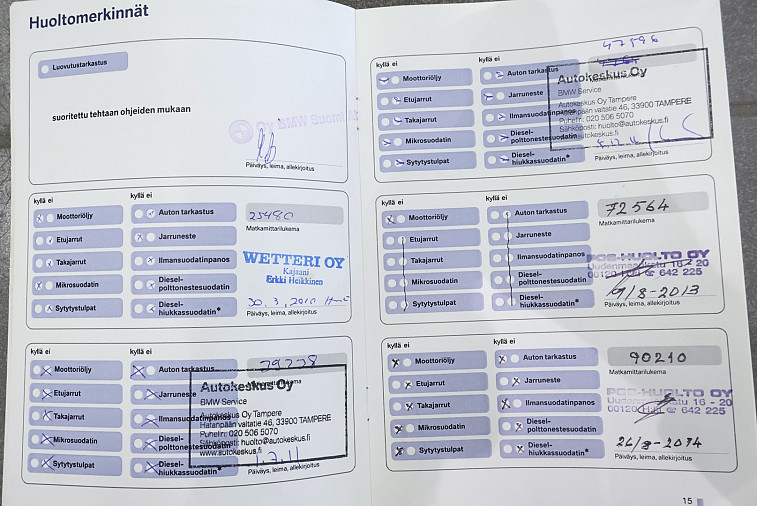 Huoltomerkinnät
Luovutustarkastus
suoritettu tehtaan ohjeiden mukaan
Oy BMW Suomi Ab
Päiväys, leima, allekirjoitus
kyllä ei
kyllä ei
Moottoriöljy
Auton tarkastus
25490
Etujarrut
Jarruneste
Matkamittarilukema
Takajarrut
Ilmansuodatinpanos
WETTERI OY
Kajaani
Erkki Heikkinen
Mikrosuodatin
Diesel-
polttonestesuodatin
Sytytystulpat
Diesel-
hiukkassuodatin*
30.3.2010
Päiväys, leima, allekirjoitus
kyllä ei
kyllä ei
Moottoriöljy
Auton tarkastus
Matkamittarilukema
Etujarrut
Jarruneste
Autokeskus Oy
BMW Service
Takajarrut
Ilmansuodatinpanos
Autokeskus Oy Tampere
Hatanpään valtatie 46, 33900 TAMPERE
Mikrosuodatin
Diesel-
polttonestesuodatin
Puhelin: 020 506 5070
Sähköposti: huolto@autokeskus.fi
www.autokeskus.fi
Sytytystulpat
Diesel-
hiukkassuodatin*
1.7.11
Päiväys, leima, allekirjoitus
kyllä ei
kyllä ei
47596
Moottoriöljy
Auton tarkastus
Autokeskus Oy
BMW Service
Etujarrut
Jarruneste
Autokeskus Oy Tampere
Hatanpään valtatie 46, 33900 TAMPERE
Takajarrut
Ilmansuodatinpanos
Puhelin: 020 506 5070
Sähköposti: huolto@autokeskus.fi
www.autokeskus.fi
Mikrosuodatin
Diesel-
polttonestesuodatin
Sytytystulpat
Diesel-
hiukkassuodatin*
Päiväys, leima, allekirjoitus
kyllä ei
kyllä ei
Moottoriöljy
Auton tarkastus
72564
Matkamittarilukema
Etujarrut
Jarruneste
Takajarrut
Ilmansuodatinpanos
POS-HUOLTO OY
Uudenmaankatu 16 - 20
00120 H:KI ☎ 642 225
Mikrosuodatin
Diesel-
polttonestesuodatin
Sytytystulpat
Diesel-
hiukkassuodatin*
9/8-2013
Päiväys, leima, allekirjoitus
kyllä ei
kyllä ei
Moottoriöljy
Auton tarkastus
90210
Matkamittarilukema
Etujarrut
Jarruneste
Takajarrut
Ilmansuodatinpanos
POS-HUOLTO OY
Uudenmaankatu 16 - 20
00120 H:KI ☎ 642 225
Mikrosuodatin
Diesel-
polttonestesuodatin
Sytytystulpat
Diesel-
hiukkassuodatin*
26/8-2014
Päiväys, leima, allekirjoitus
15